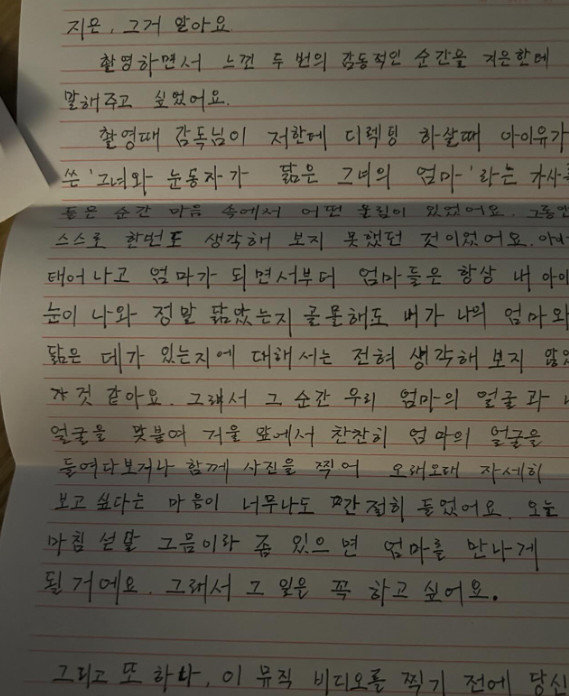 지은, 그거 알아요
촬영하면서 느낀 두 번의 감동적인 순간을 지은한테
말해주고 싶었어요.
촬영때 감독님이 저한테 디렉팅 하살때 아이유가
쓴 '그녀와 눈동자가 닮은 그녀의 엄마'라는 가사를
들은 순간 마음 속에서 어떤 울림이 있었어요. 그동안
스스로 한번도 생각해 보지 못했던 것이었어요.
태어나고 엄마가 되면서부터 엄마들은 항상 내 아이
눈이 나와 정말 닮았는지 골몰해도 내가 나의 엄마와
닮은 데가 있는지에 대해서는 전혀 생각해 보지 않았
것 같아요. 그래서 그 순간 우리 엄마의 얼굴과
얼굴을 맞붙여 거울 앞에서 찬찬히 엄마의 얼굴을
들여다보거나 함께 사진을 찍어 오래오래 자세히
보고 싶다는 마음이 너무나도 간절히 들었어요. 오늘
마침 섣달 그믐이라 좀 있으면 엄마를 만나게
될 거예요. 그래서 그 일은 꼭 하고 싶어요.
그리고 또 하나, 이 뮤직 비디오를 찍기 전에 당신